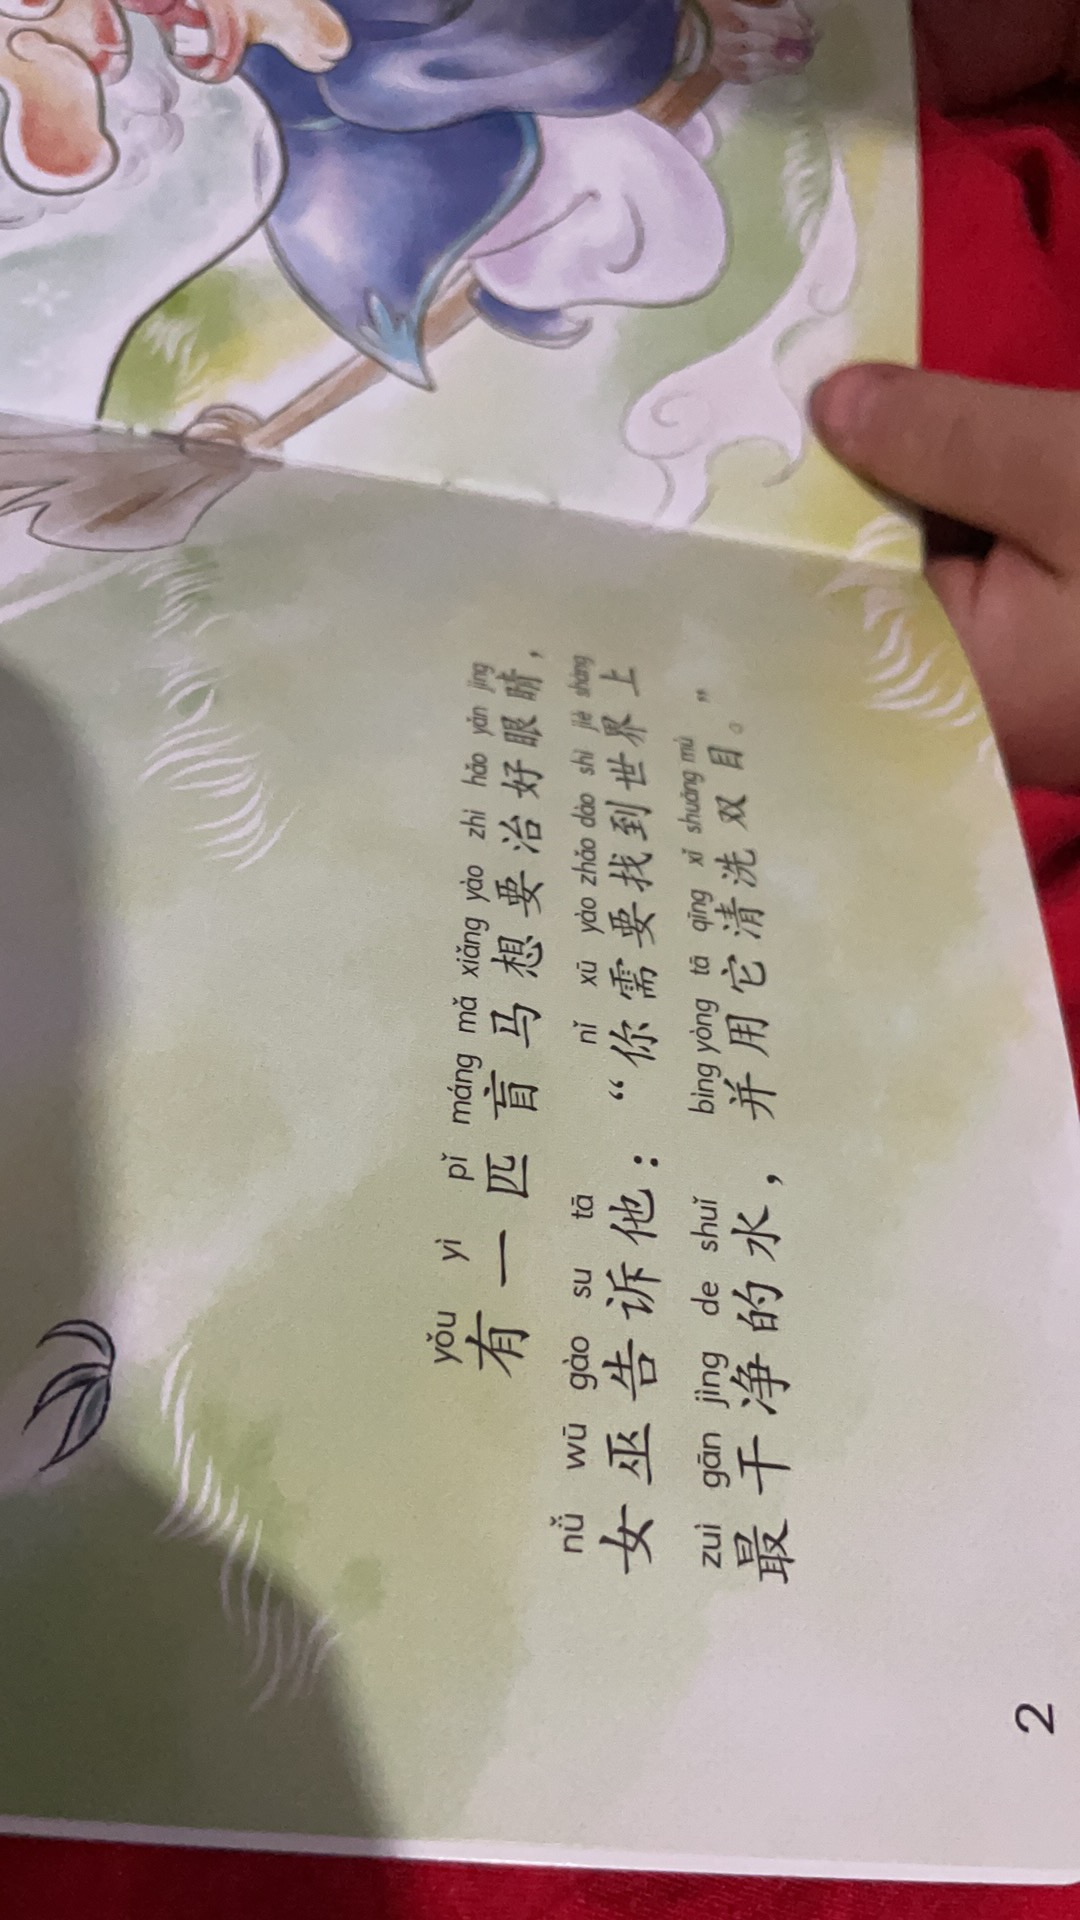 yǒu yì pǐ máng mǎ xiǎng yào zhì hǎo yǎn jing
有一匹盲马想要治好眼睛，
nǚ wū gào su tā nǐ xū yào zhǎo dào shì jiè shàng
女巫告诉他：“你需要找到世界上
zuì gān jìng de shuǐ bìng yòng tā qīng xǐ shuāng mù
最干净的水，并用它清洗双目。”
2